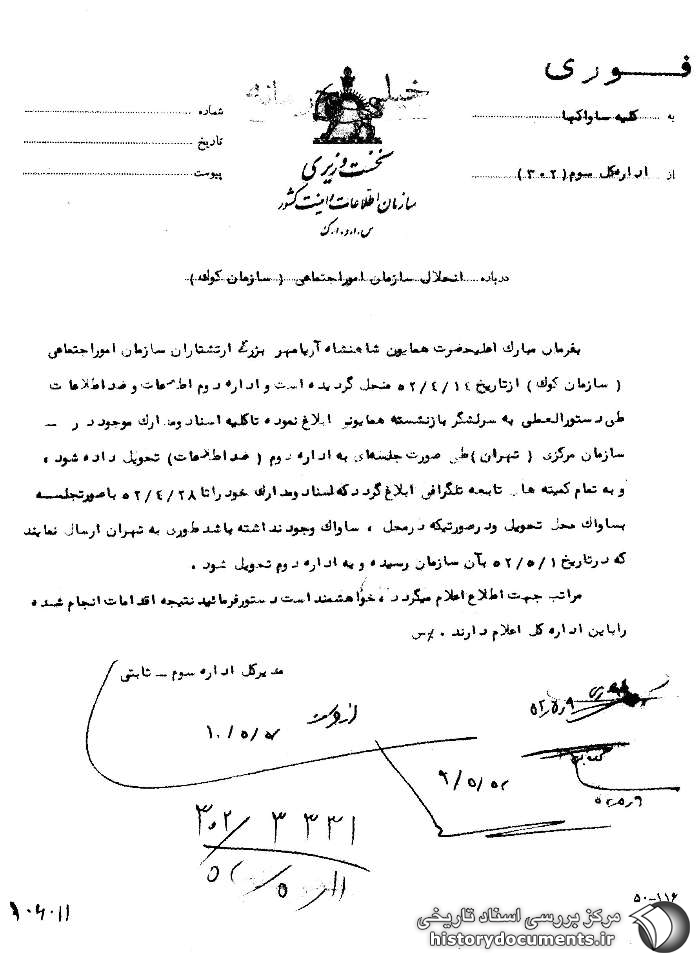 فـــوری
خیلی محرمانه
به کلیه ساواکها
شماره
تاریخ
از اداره‌کل سوم (۳۰۲)
پیوست
نخست وزیری
سازمان اطلاعات و امنیت کشور
س.ا.و.ا.ک
درباره انحلال سازمان امور اجتماعی (سازمان کوک)
بفرمان مبارک اعلیحضرت همایون شاهنشاه آریامهر بزرگ ارتشتاران سازمان امور اجتماعی
(سازمان کوک) از تاریخ ۵۲/۴/۱۴ منحل گردیده است و اداره دوم اطلاعات و ضد اطلاعات
طی دستورالعملی به سرلشگر بازنشسته همایونی ابلاغ نموده تا کلیه اسناد و مدارک موجود در –
سازمان مرکزی (تهران) طی صورت جلسه‌ای به اداره دوم (ضد اطلاعات) تحویل داده شود،
و به تمام کمیته های تابعه تلگرافی ابلاغ گردد که اسناد و مدارک خود را تا ۵۲/۴/۲۸ با صورتجلسه
بساواک محل تحویل و در صورتیکه در محل، ساواک وجود نداشته باشد طوری به تهران ارسال نمایند
که در تاریخ ۵۲/۵/۱ بآن سازمان رسیده و به اداره دوم تحویل شود.
مراتب جهت اطلاع اعلام میگردد، خواهشمند است دستور فرمائید نتیجه اقدامات انجام شده
را باین اداره کل اعلام دارند.
مدیرکل اداره سوم – ثابتی
۵۲٫۵٫۹
۱۰/۵/۵۲
۹/۵/۵۲
۵۲٫۵٫۹
۳۰۲/۳۳۳۱
۵۰-۱۱۶
مرکز بررسی اسناد تاریخی
historydocuments.ir